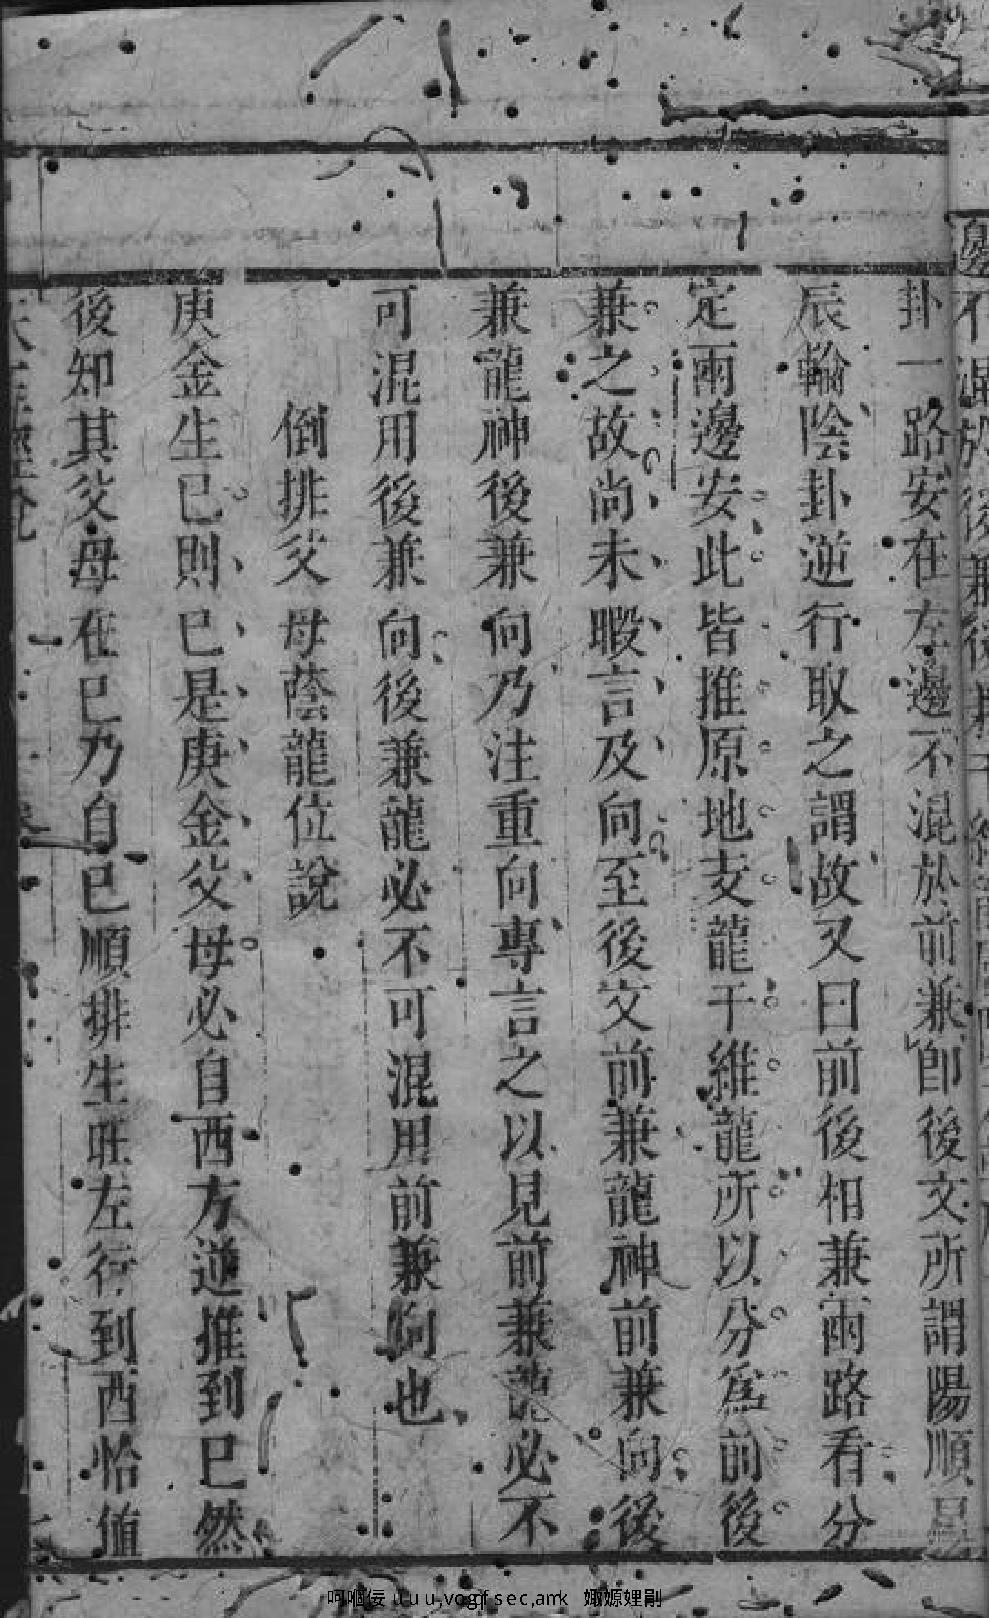 卦一路安在左邊不混於前兼卽後文所謂陽順星
辰輪陰卦逆行取之謂故又曰前後相兼兩路看分
定兩邊安此皆推原地支龍干維龍所以分爲前後
兼之故尚未暇言及向至後文前兼龍神前兼向後
兼龍神後兼向乃注重向專言之以見前兼龍必不
可混用後兼向後兼龍必不可混用前兼向也
倒排父母蔭龍位說
庚金生巳則巳是庚金父母必自酉方逆推到巳然
後知其父母在巳乃自巳順排生旺左行到酉恰值